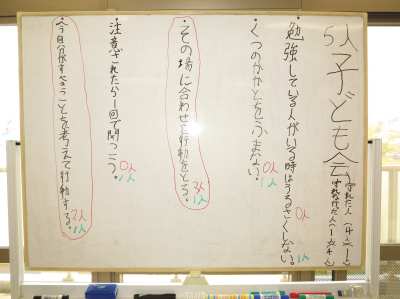 子ども会
5人
守れた人(
守れなかった人(
・勉強している人がいる時はうるさくしない。
0人
1人
・くつのかかとをふまない。
0人
1人
・その場に合わせた行動をとる。
3人
1人
・注意されたら1回で聞こう。
0人
1人
・今自分がすべきことを考えて行動する。
2人
1人